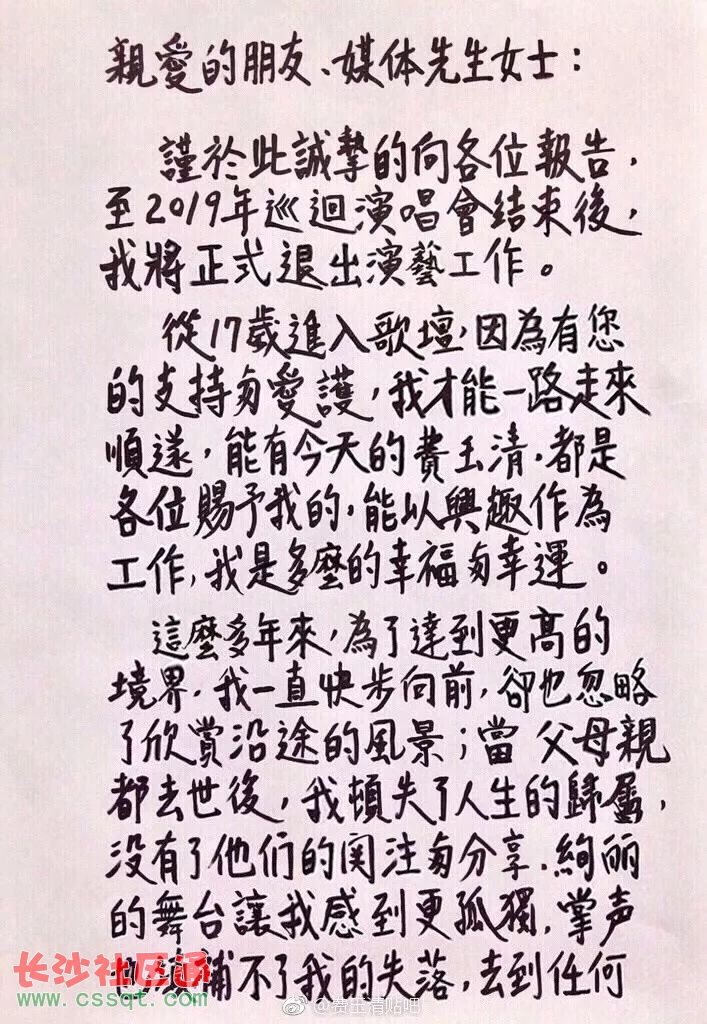 親愛的朋友、媒体先生女士：
謹於此誠摯的向各位報告，
至2019年巡迴演唱會结束後，
我將正式退出演藝工作。
從17歲進入歌壇，因為有您
的支持與愛護，我才能一路走來
順遂，能有今天的費玉清，都是
各位賜予我的，能以興趣作為
工作，我是多麼的幸福與幸運。
這麼多年來，為了達到更高的
境界，我一直快步向前，卻也忽略
了欣賞沿途的風景；當父母親
都去世後，我頓失了人生的歸屬，
没有了他们的関注與分享，絢丽
的舞台讓我感到更孤獨，掌声
補不了我的失落，去到任何
长沙社区通
www.cssqt.com
@费玉清贴吧